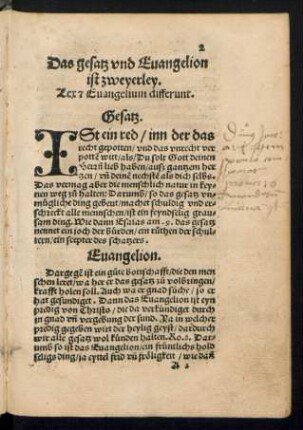 2
Das gesatz vnd Euangelion
ist zweyerley.
Lex ⁊ Euangelium differunt.
Gesatz.
ISt ein red / inn der das
recht gepotten / vnd das vnrecht ver
potten wirt / als / Du solt Gott deinen
Herrn lieb haben / auß gantzem her
tzen / vñ deinē nechstē als dich selbs.
Das vermag aber die menschlich natur in keynen
weg zů halten: Darumb / so das gesatz vn
mügliche ding gebeut / machet schuldig vnd er
schreckt alle menschen / ist ein feyndselig grau
sam ding. Wie dann Esaias am .9. das gesetz
nennet ein joch der bürden / ein růthen der schul
tern / ein scepter des schatzers.
Euangelion.
Dargegē ist ein gůte botschafft / die den men
schen leret / wa her er das gesatz zů volbringen /
krafft holen soll. Auch wa er gnad sůche / so er
hat gesündiget. Dann das Euangelion ist eyn
predig von Christo / die da verkündiget durch
in gnad vñ vergebung der sünd. Va in welcher
predig gegeben wirt der heylig geyst / dardurch
wir alle gesatz wol künden halten. Ro.8. Dar
umb so ist das Euangelion / ein früntlichs hold
seligs ding / ja eyttel frid vñ frőligkeit / wie dañ
A 2